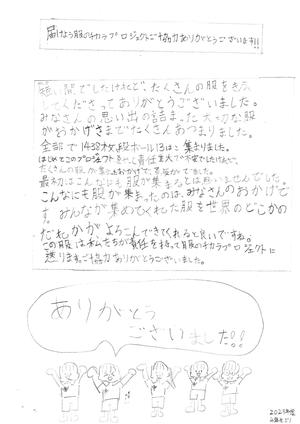 届けよう服のチカラプロジェクトご協力ありがとうございます!!
短い間でしたけれどたくさんの服をきふ
してくださってありがとうございました。
みなさんの思い出の詰まった大切な服
がおかげさまでたくさんあつまりました。
全部で1438枚、段ボール13はこ集まりました。
はじめてこのプロジェクトをして責任重大で不安でしたけれど、
たくさんの服が集
最初はこんなにも服が集まるとは思いませんでした。
こんなにも服が集まったのは、みなさんのおかげで
す。みんなが集めてくれた服を世界のどこかの
だれかがよろこんできてくれると良いですね。
この服は私たちが責任を持って服のチカラプロジェクトに
送ります。ご協力ありがとうございました。
ありがとう
ございました!!
2023年度